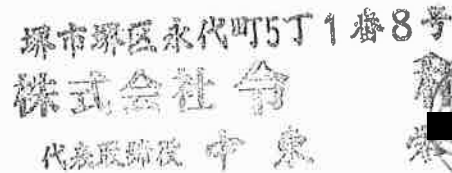 堺市堺区永代町5丁1番8号
株式会社 令
代表取締役 中 東